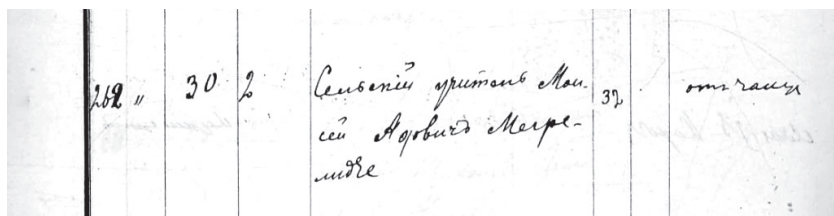 262 " 30 2 Сельскій учитель Мои-
сей Адовичъ Мегре-
лидзе
32
отъ чахотки